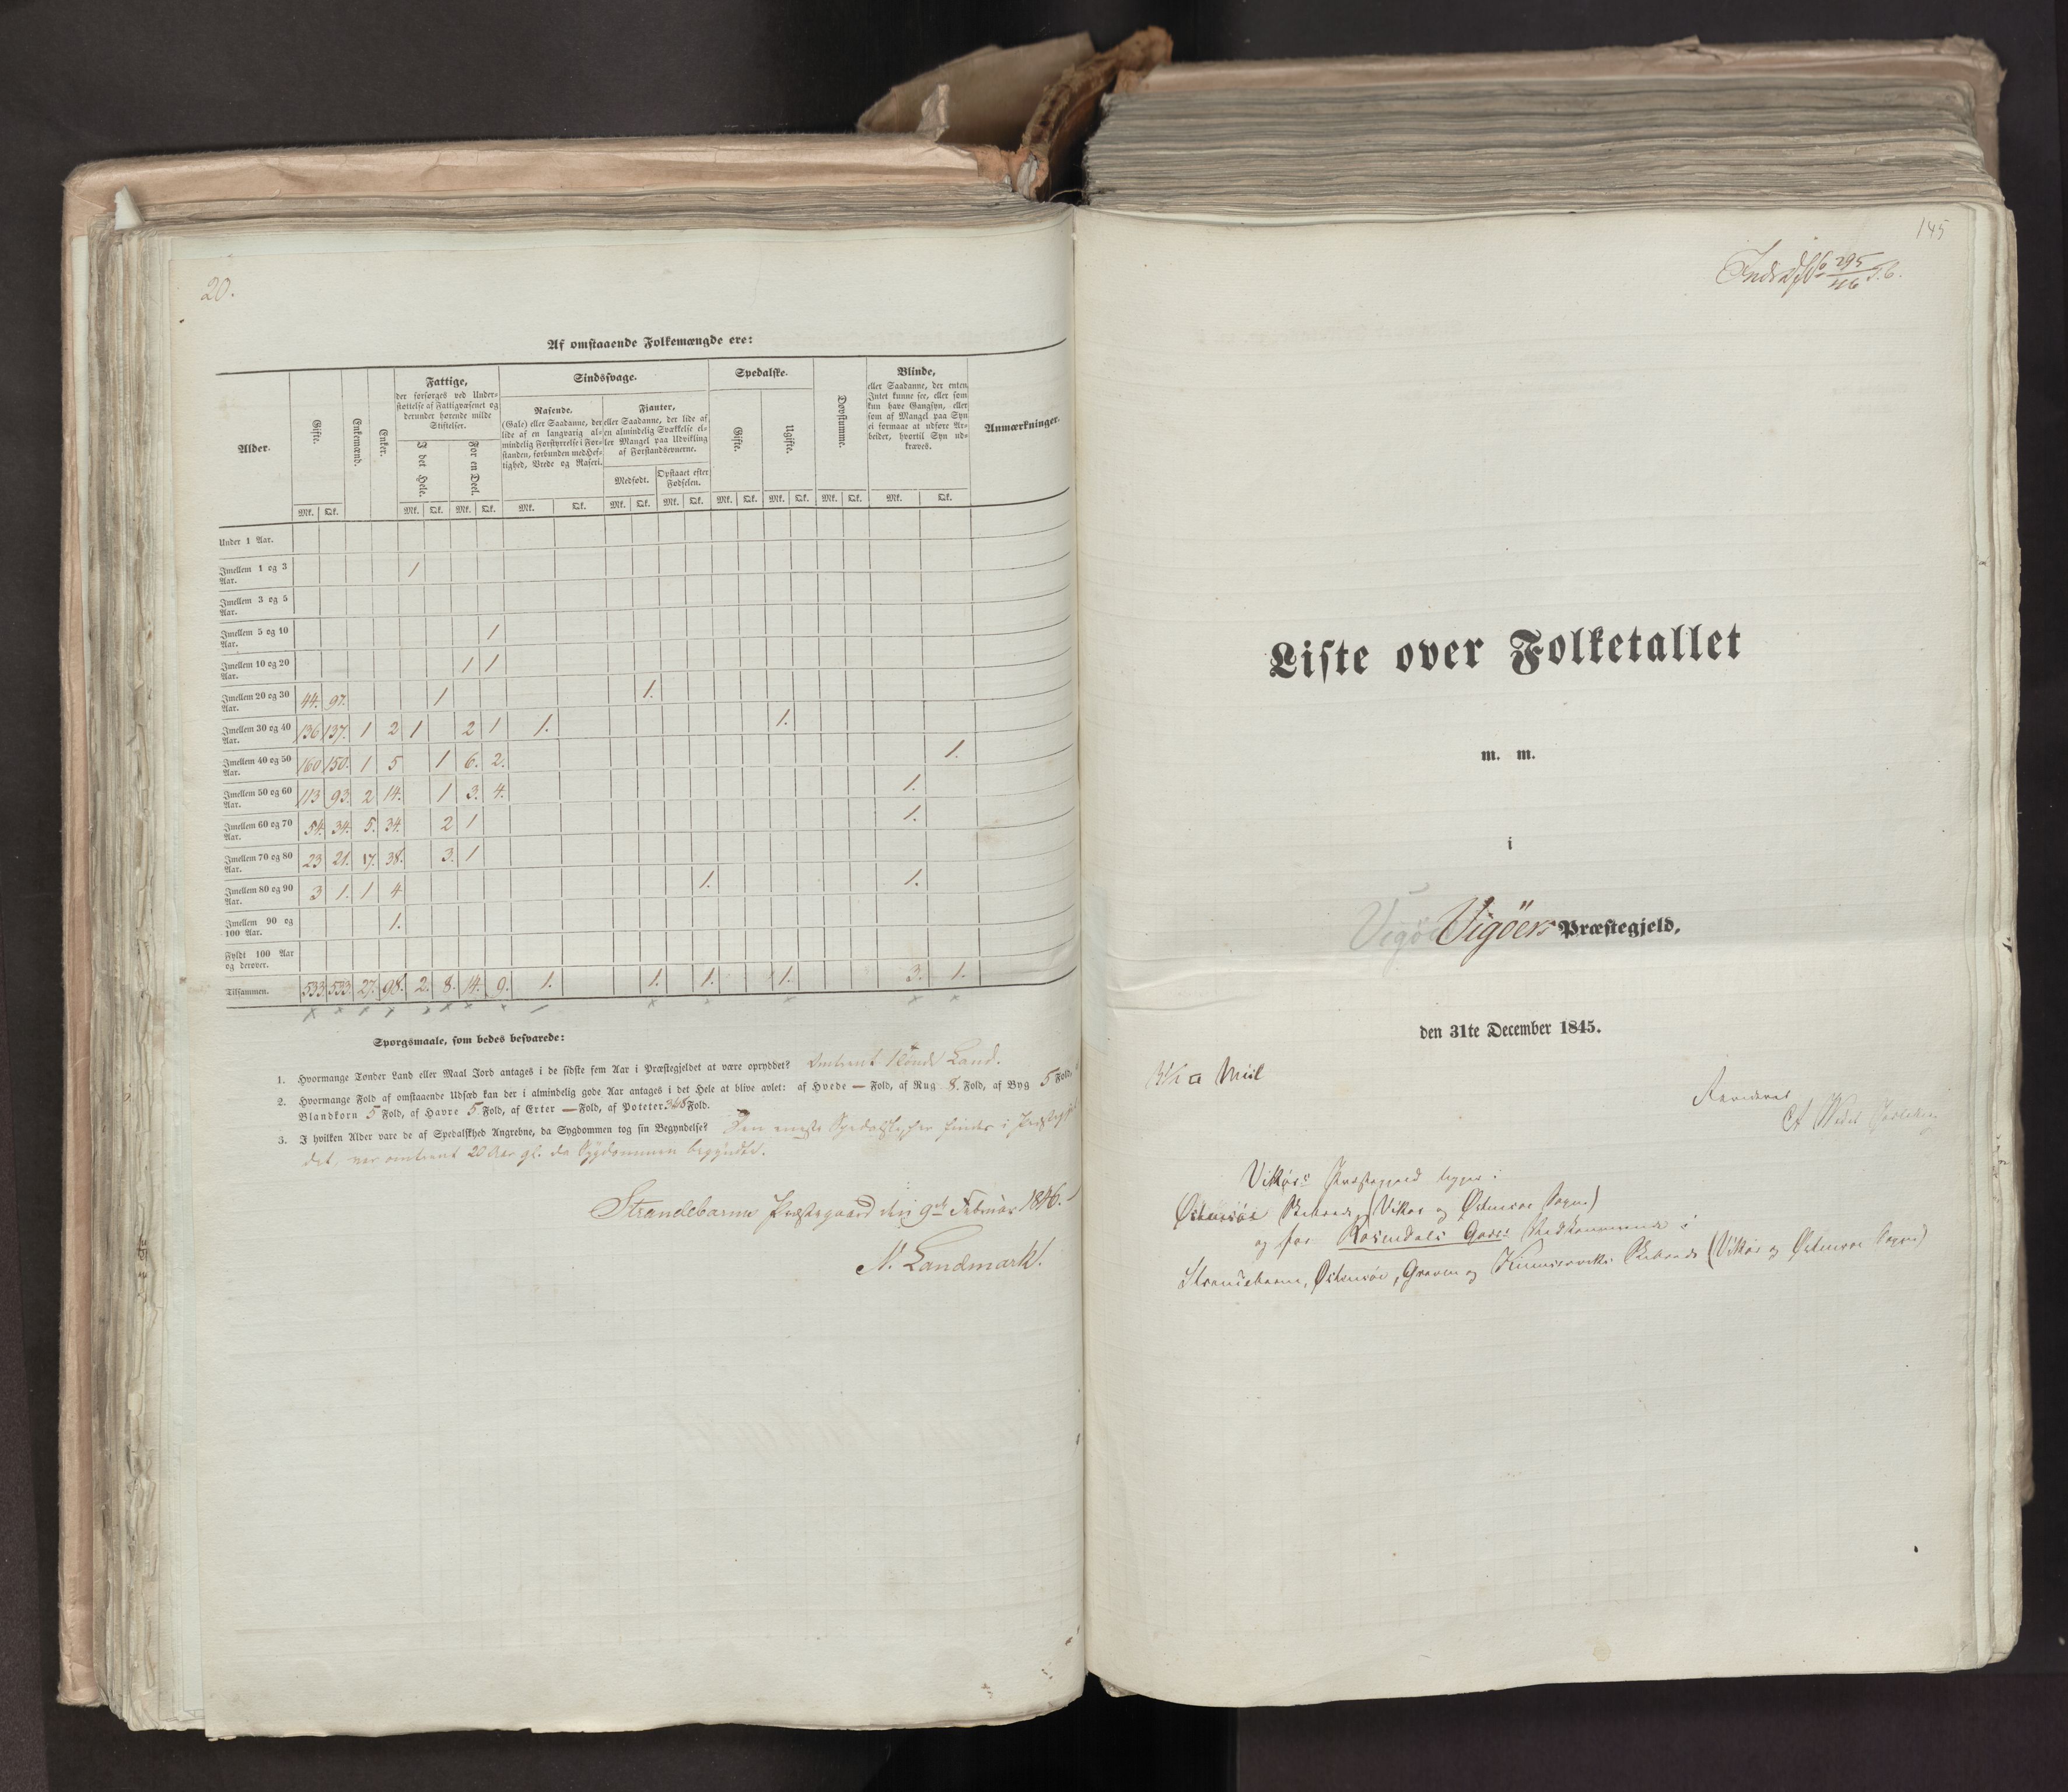 20.
Af omstaaende Folkemængde ere:
Alder.
Gifte.
Enkemænd.
Enker.
Fattige,
der forsørges ved Under-
støttelse af Fattigvæsenet og
derunder hørende milde
Stiftelser.
I det Hele.
For en Deel.
Sindssvage.
Rasende.
(Gale) eller Saadanne, der
lide af en langvarig al-
mindelig Forstyrrelse i For-
standen, forbunden med Hef-
tighed, Vrede og Raseri.
Fjanter,
eller Saadanne, der lide af
en almindelig Svækkelse el-
ler Mangel paa Udvikling
af Forstandsevnerne.
Medfødt.
Opstaaet efter
Fødselen.
Spedalske.
Gifte.
Ugifte.
Døvstumme.
Blinde,
eller Saadanne, der enten
Intet kunne see, eller som
kun have Gangsyn, eller
som af Mangel paa Syn
ei formaae at udføre Ar-
beider, hvortil Syn ud-
kræves.
Anmærkninger.
Mk. Qk. Mk. Qk. Mk. Qk. Mk. Qk. Mk. Qk. Mk. Qk. Mk. Qk. Mk. Qk. Mk. Qk. Mk. Qk.
Under 1 Aar.
Imellem 1 og 3 Aar. 1
Imellem 3 og 5 Aar.
Imellem 5 og 10 Aar. 1
Imellem 10 og 20 Aar. 1 1
Imellem 20 og 30 Aar. 44. 97. 1 1.
Imellem 30 og 40 Aar. 136 137. 1 2 1 2 1 1. 1.
Imellem 40 og 50 Aar. 160 150. 1 5 1 6. 2. 1.
Imellem 50 og 60 Aar. 113 93. 2 14. 1 3. 4. 1.
Imellem 60 og 70 Aar. 54. 34. 5. 34. 2 1 1.
Imellem 70 og 80 Aar. 23 21. 17. 38. 3. 1
Imellem 80 og 90 Aar. 3 1. 1 4 1. 1.
Imellem 90 og 100 Aar. 1.
Fyldt 100 Aar og derover.
Tilsammen. 533. 533. 27. 98. 2. 8. 14. 9. 1. 1. 1. 1. 3. 1.
Spørgsmaale, som bedes besvarede:
1. Hvormange Tønder Land eller Maal Jord antages i de sidste fem Aar i Præstegjeldet at være opryddet? Omtrent 1 Tønde Land.
2. Hvormange Fold af omstaaende Udsæd kan der i almindelig gode Aar antages i det Hele at blive avlet: af Hvede — Fold, af Rug 8. Fold, af Byg 5 Fold,
Blandkorn 5 Fold, af Havre 5 Fold, af Erter — Fold, af Poteter Fold.
3. I hvilken Alder vare de af Spedalskhed Angrebne, da Sygdommen tog sin Begyndelse? Den eneste Spedalske, her findes i Præstegjel-
det, var omtrent 20 Aar gl. da Sygdommen begyndte.
Strandebarm Præstegaard den 9de Februar 1846.
N. Landmark.
145
295
46
Liste over Folketallet
m. m.
i
Vigörs Præstegjeld,
den 31te December 1845.
3½ □ Miil
Revideret
Vikørs Præstegjeld ligger i
Østensøe Skibrede (Vikør og Østensøe Sogne)
og for Rosendals Gods Vedkommende i
Strandebarm, Østensøe, Graven og Kinserviks Skibrede (Vikør og Østensøe Sogne)